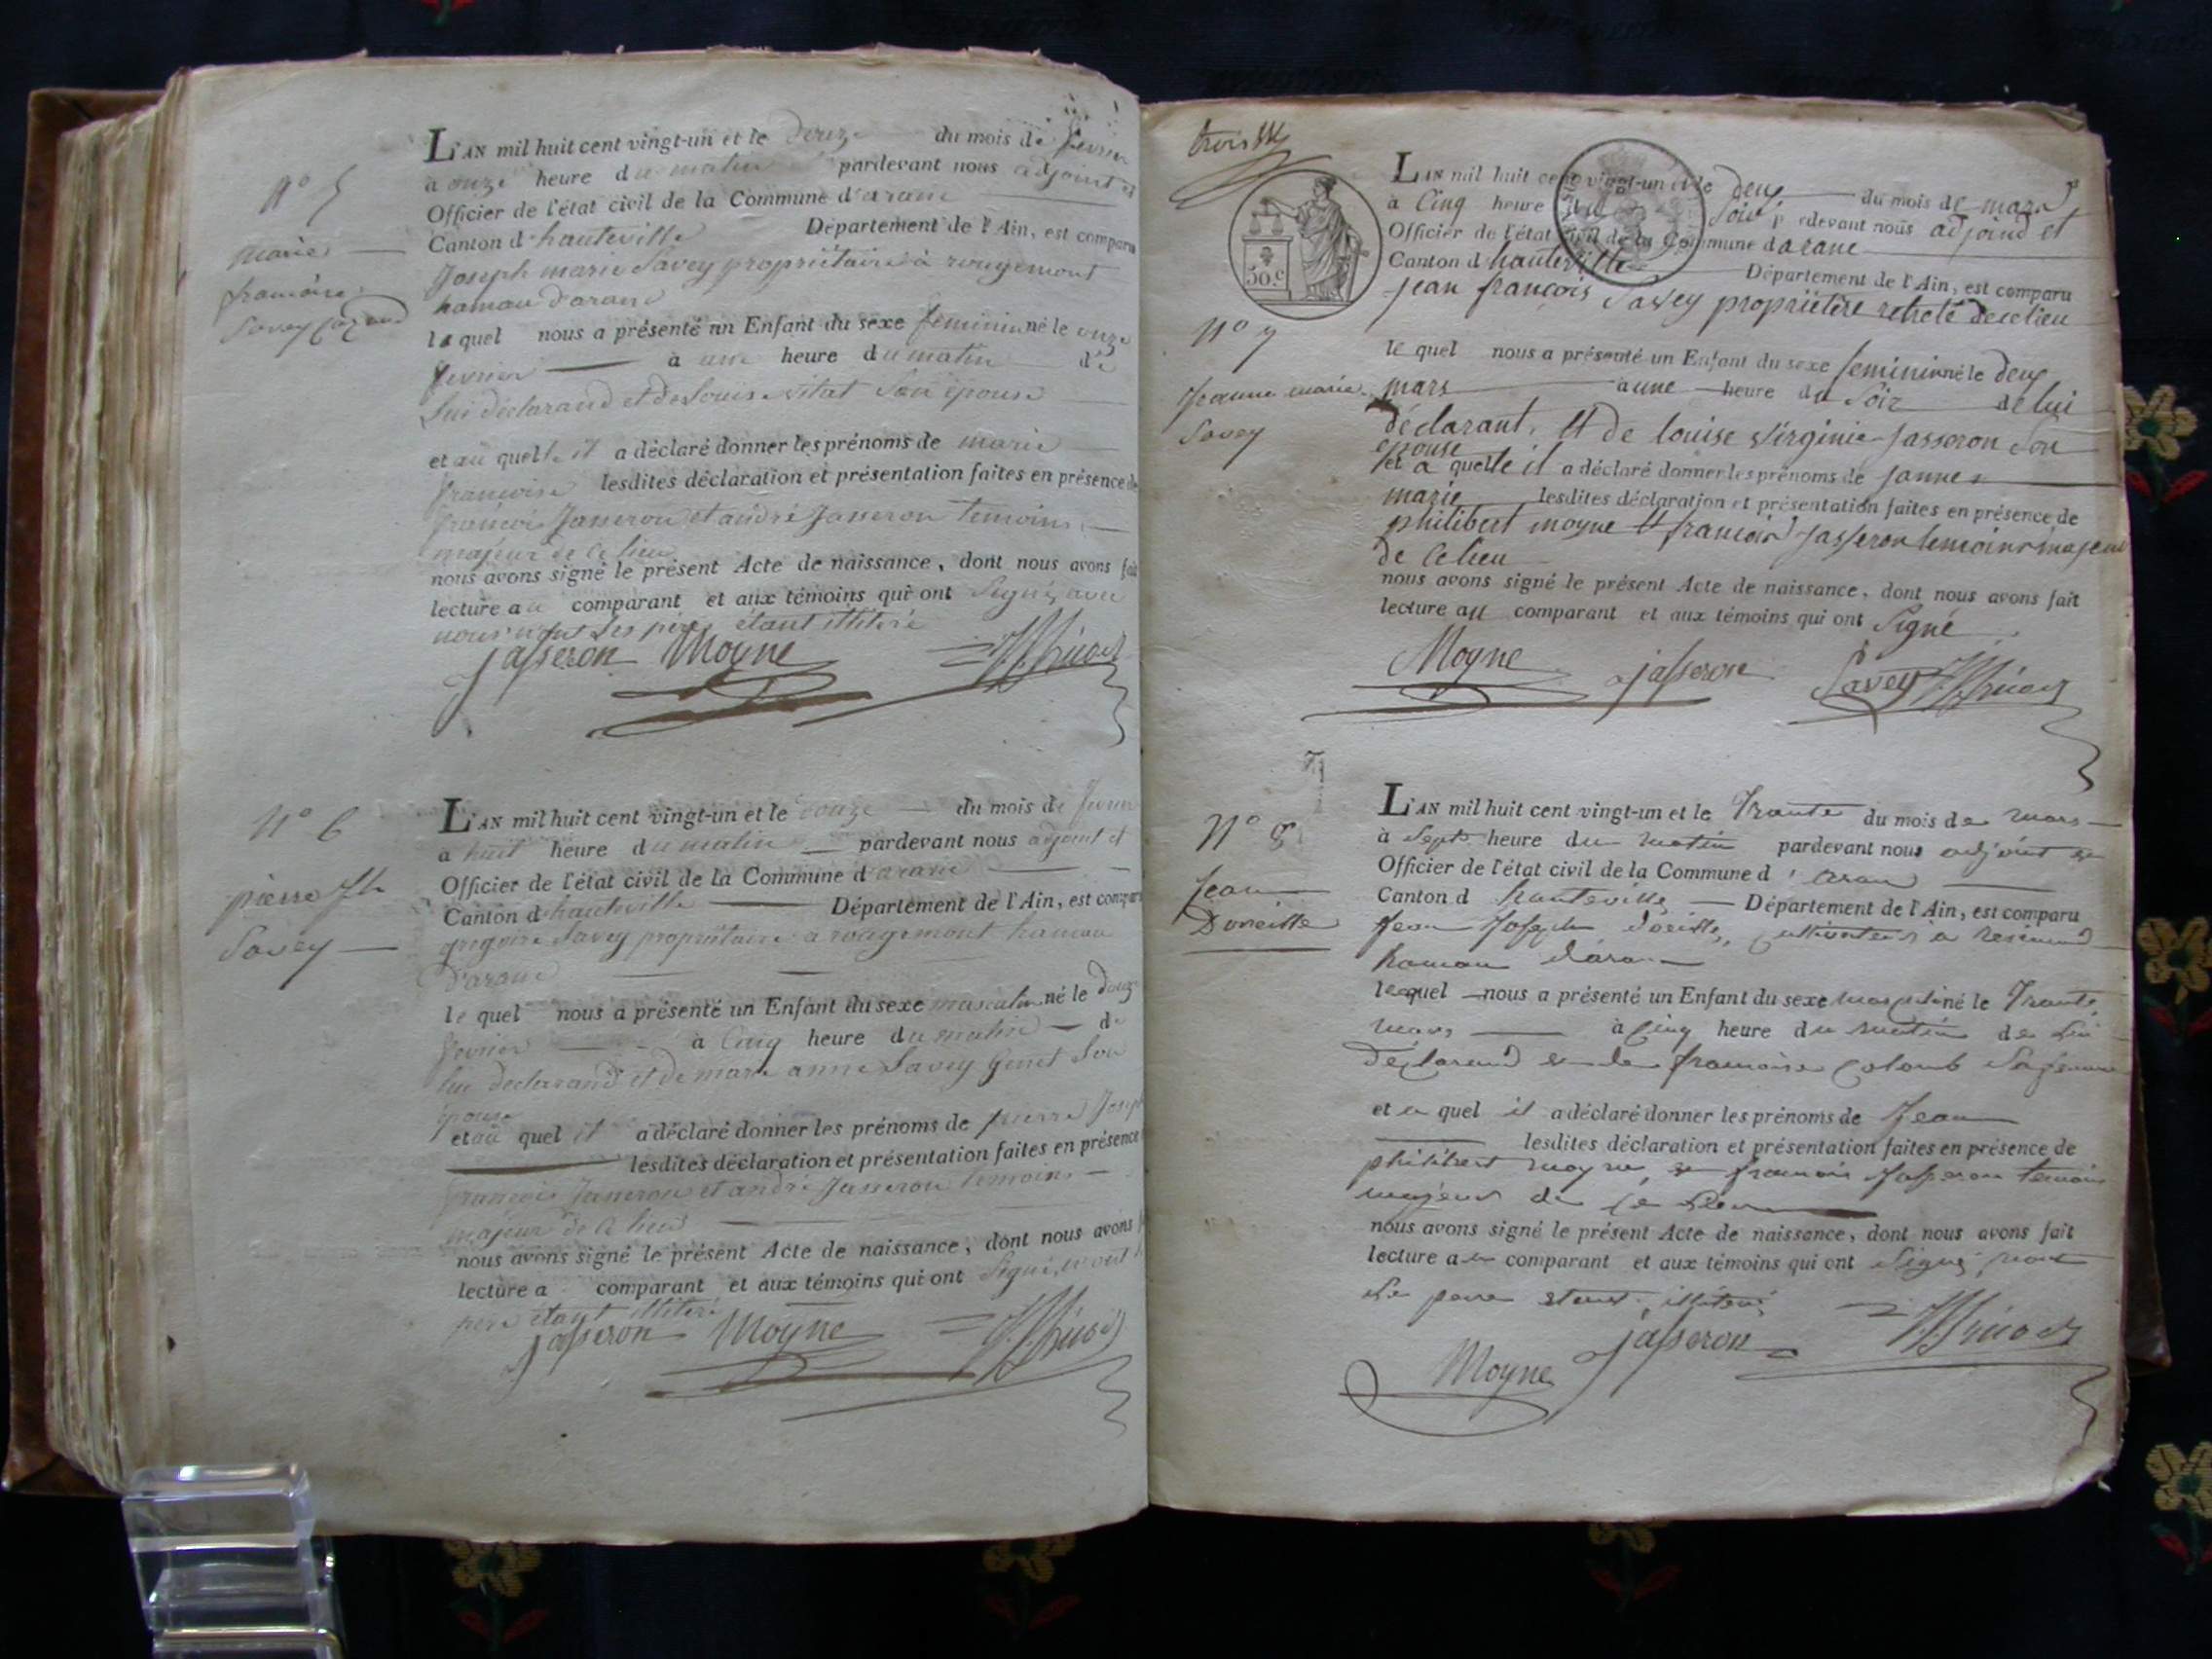 N° 5
marie
francoise
Savey
L'AN mil huit cent vingt-un et le douze du mois de fevrier
à onze heure du matin pardevant nous adjoint et
Officier de l'état civil de la Commune d'arane
Canton d hauteville Département de l'Ain, est comparu
Joseph marie Savey propriétaire à rougemont
hamau d'arane
le quel nous a présenté un Enfant du sexe feminin né le onze
fevrier à une heure du matin de
lui déclarand et de Louise Vitat Son épouse
et au quelle il a déclaré donner les prénoms de marie
francoise lesdites déclaration et présentation faites en présence de
francois Jasseron et andré Jasseron temoins
majeur de ce lieu
nous avons signé le présent Acte de naissance, dont nous avons fait
lecture au comparant et aux témoins qui ont Signé, avec
nous étant illitéré
jasseron Moyne
N° 6
pierre Jh
Savey
L'AN mil huit cent vingt-un et le douze du mois de fevrier
à huit heure du matin pardevant nous adjoint et
Officier de l'état civil de la Commune d arane
Canton d hauteville Département de l'Ain, est comparu
gregoire Savey propriétaire a rougemont hamau
d'arane
le quel nous a présenté un Enfant du sexe masculin né le douze
fevrier à Cinq heure du matin de
lui declarand et de marie anne Savey Genet Son
épouse
et au quel il a déclaré donner les prénoms de pierre Joseph
lesdites déclaration et présentation faites en présence
francois Jasseron et andré Jasseron temoins
majeur de ce lieu
nous avons signé le présent Acte de naissance, dont nous avons
lecture a comparant et aux témoins qui ont Signé, non le
pere étant illitéré
jasseron Moyne
trois
50.c
N° 7
Jeanne marie
Savey
L'AN mil huit cent vingt-un et le deux du mois de mars
à Cinq heure du Soir pardevant nous adjoind et
Officier de l'état civil de la Commune d arane
Canton d hauteville Département de l'Ain, est comparu
jean françois Savey propriétère retreté de ce lieu
le quel nous a présenté un Enfant du sexe feminin né le deux
mars à une heure du Soir de lui
déclarant, et de louise Virginie Jasseron Son
epouse
et a quelle il a déclaré donner les prénoms de janne
marie lesdites déclaration et présentation faites en présence de
philibert moyne et francois Jasseron temoins majeur
de ce lieu
nous avons signé le présent Acte de naissance, dont nous avons fait
lecture au comparant et aux témoins qui ont Signé
Moyne jasseron Savey
N° 8
Jean
Doneitte
L'AN mil huit cent vingt-un et le Trante du mois de mars
à Sept heure du matin pardevant nous adjoint et
Officier de l'état civil de la Commune d'aran
Canton d hauteville Département de l'Ain, est comparu
Jean Joseph cultivateur a resinand
hamau d'aran
lequel nous a présenté un Enfant du sexe masculin né le Trante
mars à Cinq heure du matin de lui
déclarand et de francoise Colomb Sa femme
et a quel il a déclaré donner les prénoms de Jean
lesdites déclaration et présentation faites en présence de
philibert moyne et francois Jasseron temoins
majeur de ce lieu
nous avons signé le présent Acte de naissance, dont nous avons fait
lecture au comparant et aux témoins qui ont Signé, non
le pere étant illitéré
Moyne jasseron